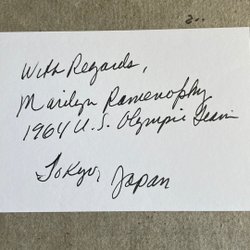 With Regards,
Marilyn Ramenofsky
1964 U.S. Olympic Team
Tokyo, Japan